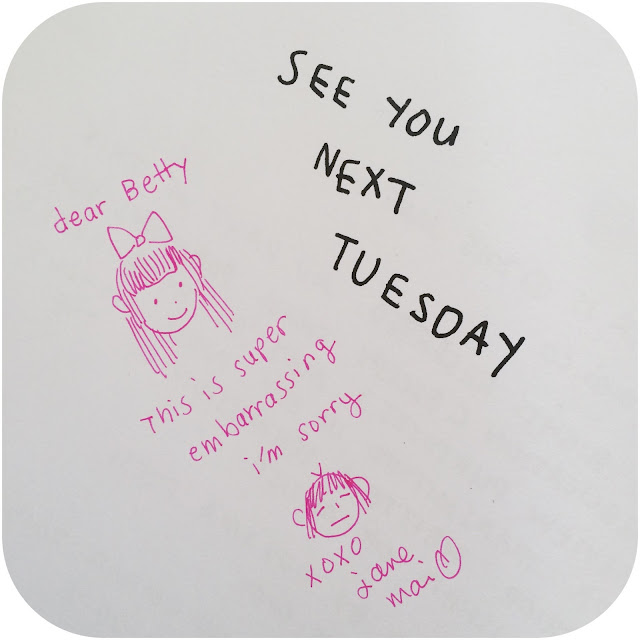 SEE YOU
NEXT
TUESDAY
dear Betty
This is super
embarrassing
i'm sorry
xoxo
jane
mai